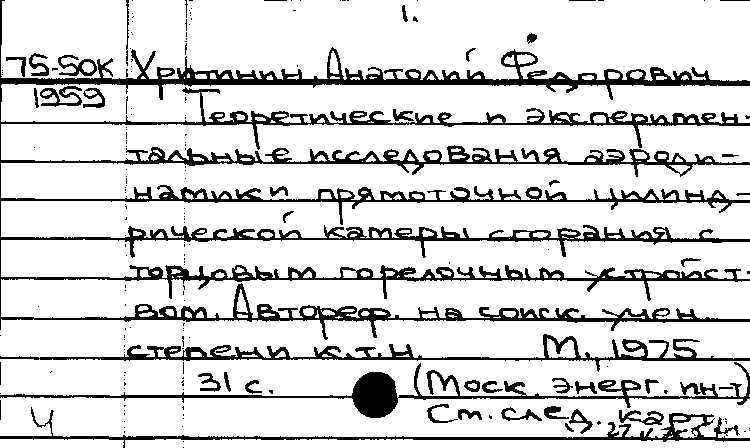 1.
75-50К Хритинин, Анатолий Федорович
1959 Теоретические и эксперимен-
тальные исследования аэроди-
намики прямоточной цилинд-
рической камеры сгорания с
торцовым горелочным устройст-
вом. Автореф. на соиск. учен.
степени к.т.н. М., 1975.
31 с. (Моск. энерг. ин-т)
Ч См. след. карт.